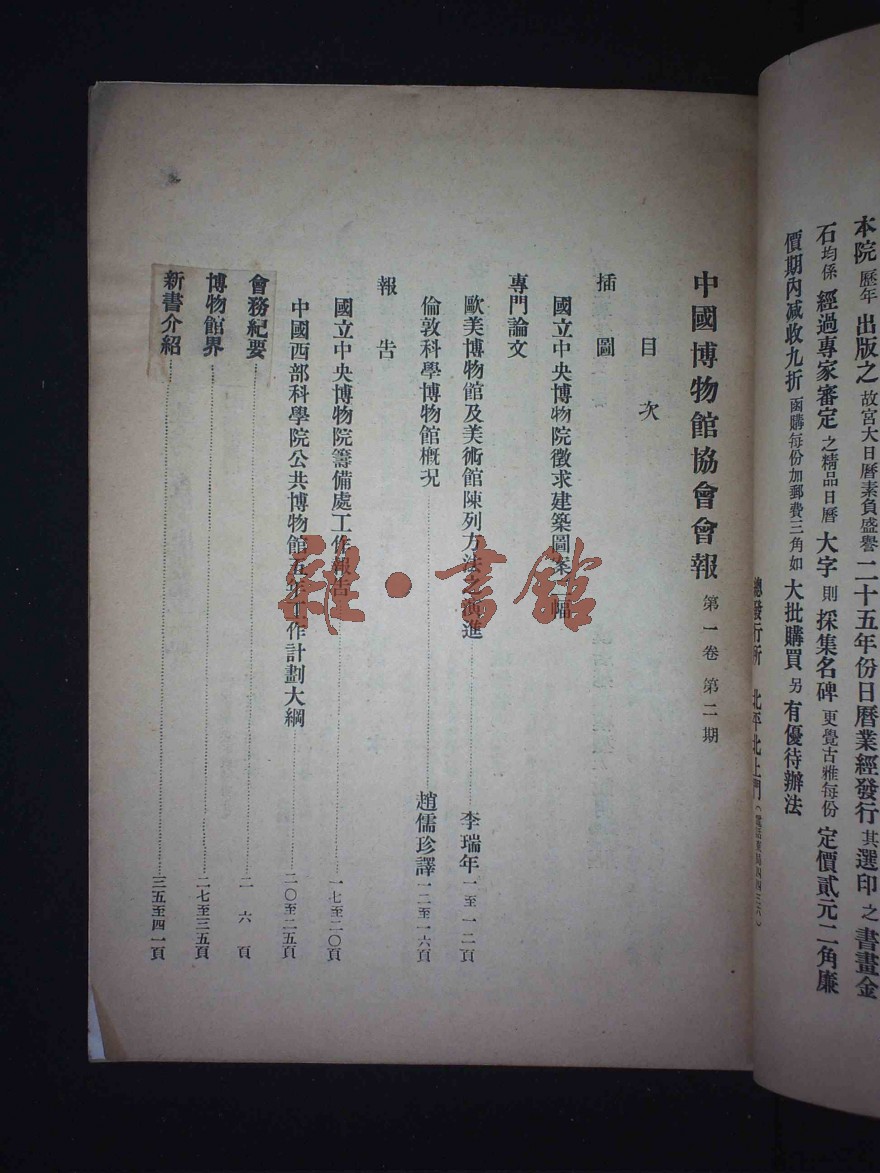 本院歷年出版之故宮大日曆素負盛譽二十五年份日曆業經發行其選印之書畫金
石均係經過專家審定之精品日曆大字則採集名碑更覺古雅每份定價貳元二角廉
價期內減收九折函購每份加郵費三角如大批購買另有優待辦法
總發行所 北平北上門
中國博物館協會會報 第一卷 第二期
目次
插圖
國立中央博物院徵求建築圖案 幅
專門論文
歐美博物館及美術館陳列方法之演進 李瑞年 一至一二頁
倫敦科學博物館概況 趙儒珍譯 一二至一六頁
報告
國立中央博物院籌備處工作報告 一七至二〇頁
中國西部科學院公共博物館五年工作計劃大綱 二〇至二五頁
會務紀要 二六頁
博物館界 二七至三五頁
新書介紹 三五至四一頁
雜·書館